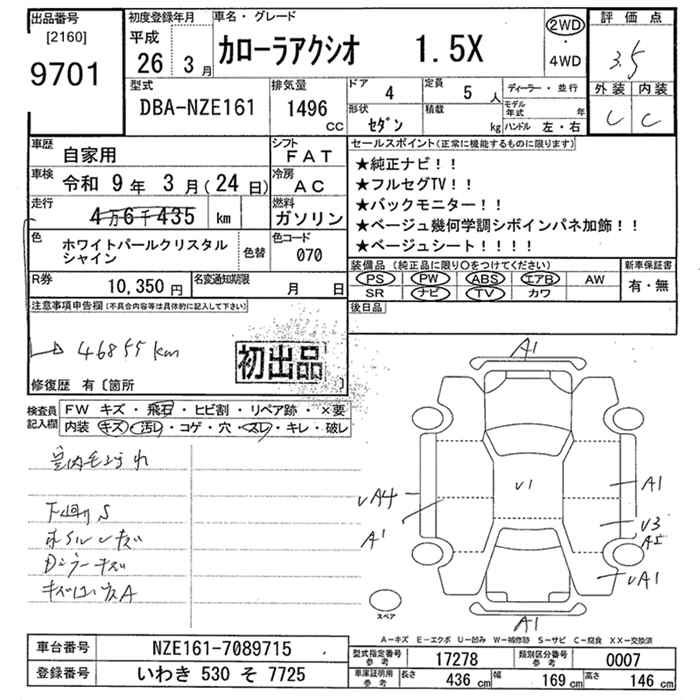 出品番号
[2160]
9701
初度登録年月
平成
26 3月
車名・グレード
カローラアクシオ 1.5X
2WD
・
4WD
評価点
3.5
外装 内装
C C
型式
DBA-NZE161
排気量
1496
CC
ドア
4
定員
5 人
形状
セダン
積載
kg
ディーラー・並行
モデル年式 年
ハンドル 左・右
車歴
自家用
シフト
FAT
車検
令和 9年 3月(24日)
冷房
AC
走行
4万6千435 km
燃料
ガソリン
色
ホワイトパールクリスタル
シャイン
色替
色コード
070
R券
10,350 円
名変通知期限
月 日
セールスポイント(正常に機能するものに限ります)
★純正ナビ!!
★フルセグTV!!
★バックモニター!!
★ベージュ幾何学調シボインパネ加飾!!
★ベージュシート!!!!
装備品(純正品に限り○をつけてください)
PS PW ABS エアB AW
SR ナビ TV カワ
新車保証書
有・無
後日品
注意事項申告欄(不具合内容等は具体的に記入して下さい)
46855km
初出品
修復歴 有〔箇所 〕
検査員記入欄
FW キズ・飛石・ヒビ割・リペア跡・×要
内装 キズ・汚レ・コゲ・穴・スレ・キレ・破レ
下廻りS
A1
UA4
A1
U1
A1
U3
A5
UA1
A1
スペア
A-キズ E-エクボ U-凹み W-補修跡 S-サビ C-腐食 XX-交換済
車台番号
NZE161-7089715
登録番号
いわき 530 そ 7725
型式指定番号
参考
17278
類別区分番号
参考
0007
車庫証明用
参考
長さ 436 cm 幅 169 cm 高さ 146 cm